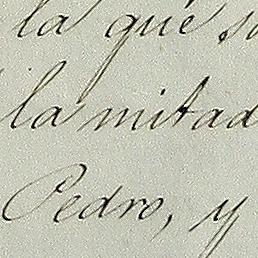 la que
la mitad
Pedro, y